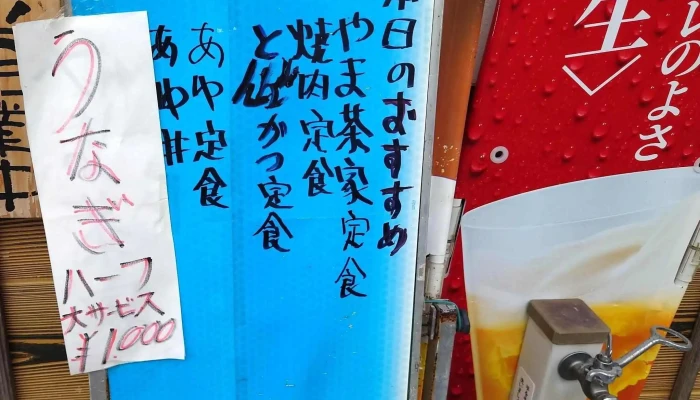 本日のおすすめ
やま茶家定食
焼肉定食
とんかつ定食
あゆ定食
あゆ丼
うなぎ
ハーフ
大サービス
¥1.000
生
のよさ